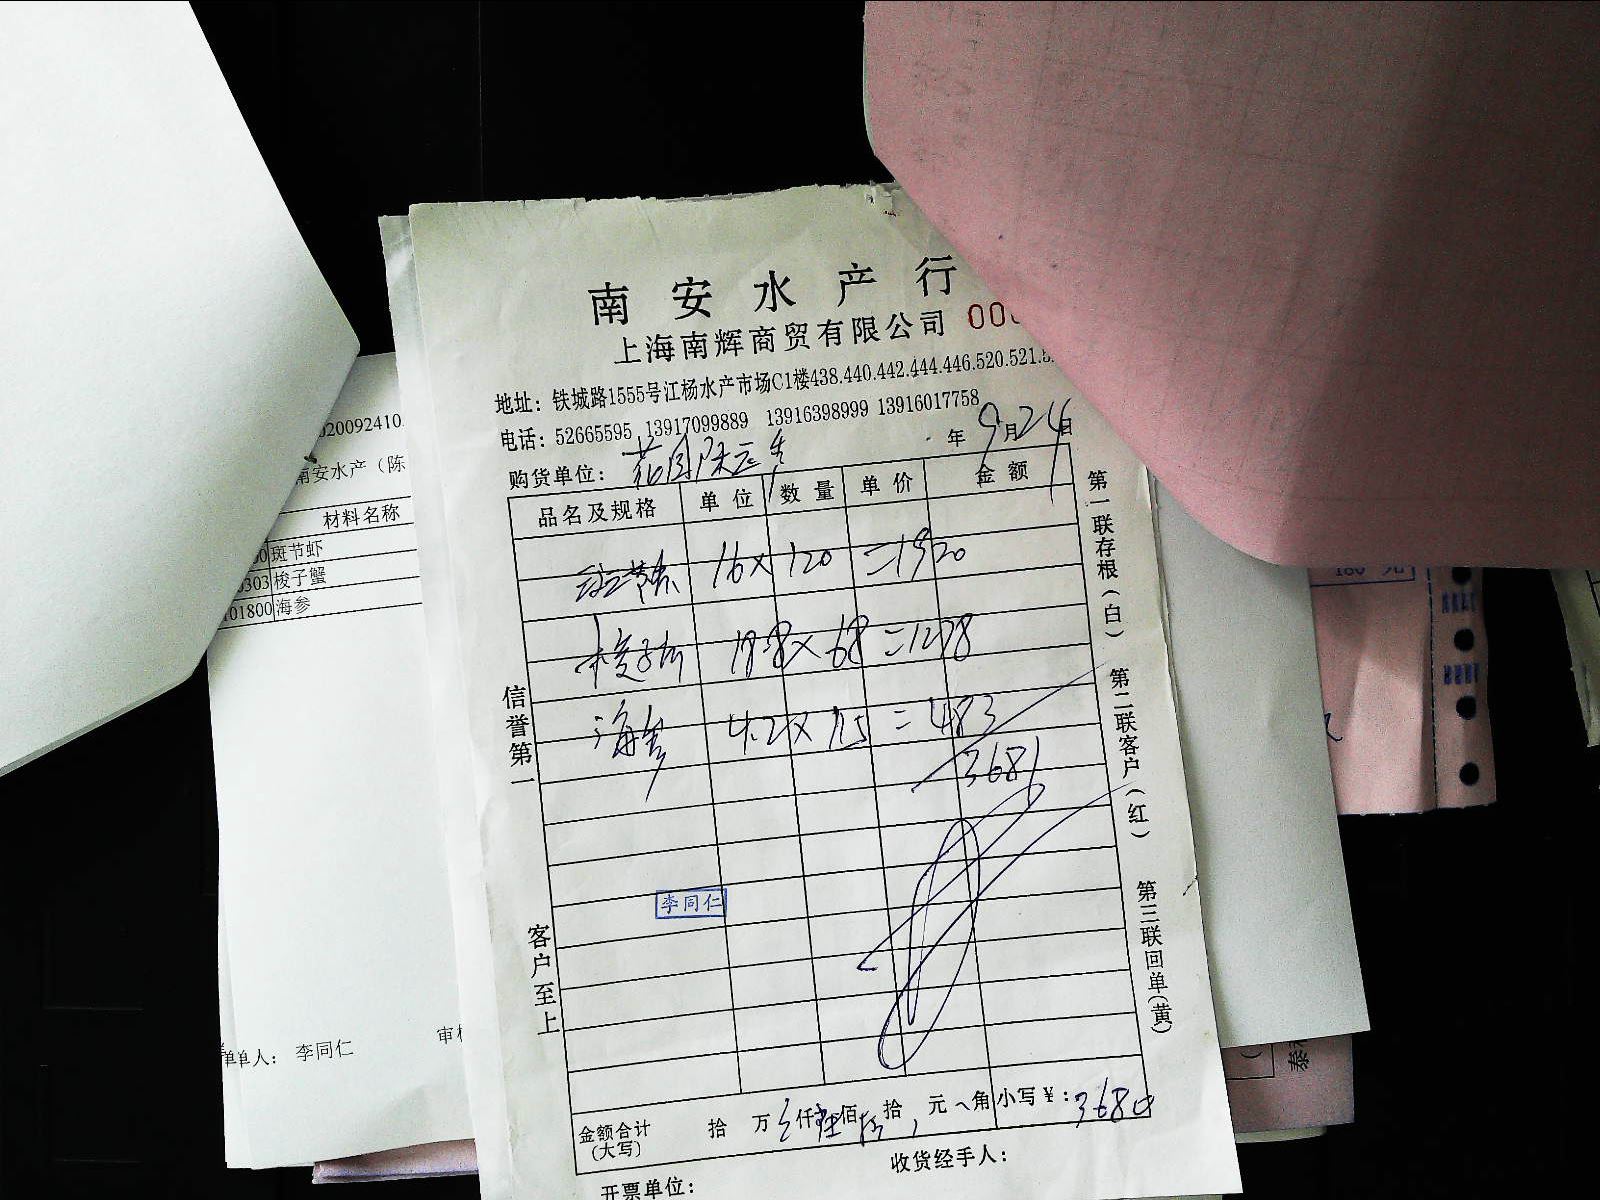 南安水产行
上海南辉商贸有限公司 000
地址：铁城路1555号江杨水产市场C1楼438.440.442.444.446.520.521.5
电话：52665595 13917099889 13916398999 13916017758
年 9月24日
购货单位：
品名及规格 单位 数量 单价 金额
斑节虾 16 × 120 = 1920
梭子蟹 × 68 = 1278
海参 4.2 × 115 = 483
3681
李同仁
金额合计(大写) 拾 万 仟 佰 拾 元 角 小写￥：3680
开票单位：
收货经手人：
信誉第一
客户至上
第一联存根(白)
第二联客户(红)
第三联回单(黄)
020092410
南安水产（陈
材料名称
斑节虾
303 梭子蟹
101800 海参
单人： 李同仁
审
180 元